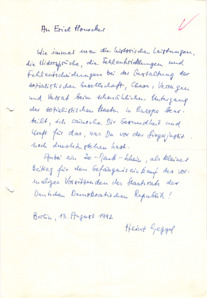 An Erich Honecker
Wie immer man die historischen Leistungen,
die Widersprüche, die Fehlentscheidungen und
Fehlentscheidungen bei der Gestaltung der
sozialistischen Gesellschaft, Chaos, Versagen
und Verrat beim schmählichen Untergang
des sozialistischen Staates in Europa beur-
teilt, ich wünsche Dir Gesundheit und
Kraft für das, was Du vor der
noch durchzustehen hast.
Anbei ein als kleiner
Beitrag für den des vor-
maligen Vorsitzenden des Staatsrats der
Deutschen Demokratischen Republik!
Berlin, 13. August 1992